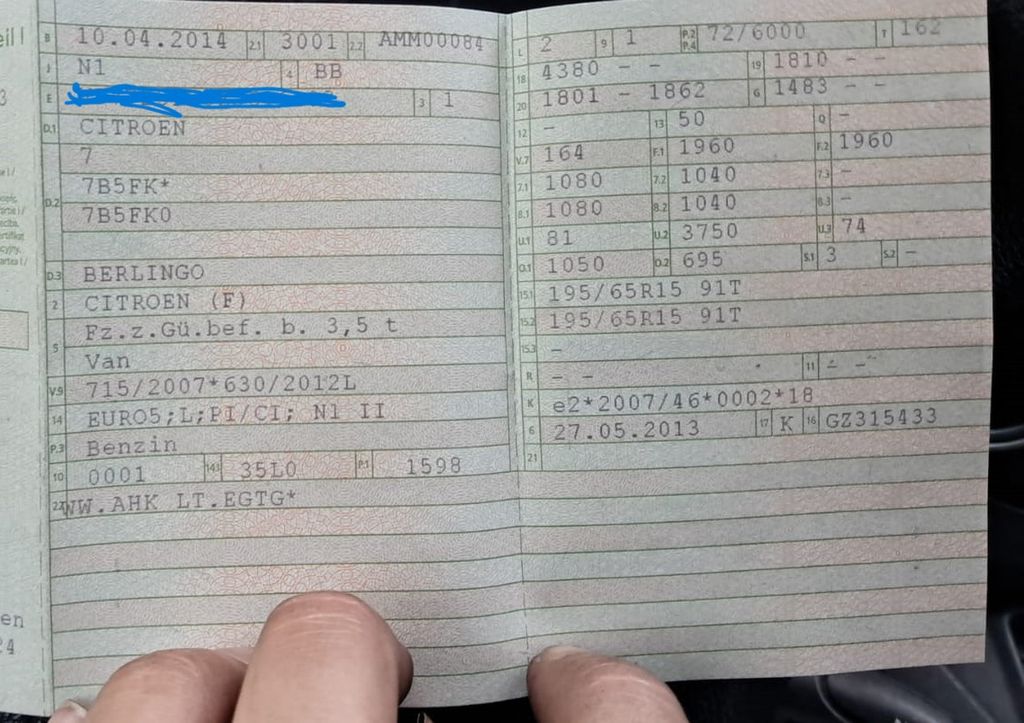 eil I
B 10.04.2014 2.1 3001 2.2 AMM00084
J N1 4 BB
E 3 1
D.1 CITROEN
7
D.2 7B5FK*
7B5FK0
D.3 BERLINGO
2 CITROEN (F)
5 Fz.z.Gü.bef. b. 3,5 t
Van
V.9 715/2007*630/2012L
14 EURO5;L;PI/CI; N1 II
P.3 Benzin
10 0001 14.1 35L0 P.1 1598
22 WW.AHK LT.EGTG*
L 2 9 1 P.2 P.4 72/6000 T 162
18 4380 - - 19 1810 - -
20 1801 - 1862 G 1483 - -
12 - 13 50 Q -
V.7 164 F.1 1960 F.2 1960
7.1 1080 7.2 1040 7.3 -
8.1 1080 8.2 1040 8.3 -
U.1 81 U.2 3750 U.3 74
O.1 1050 O.2 695 S.1 3 S.2 -
15.1 195/65R15 91T
15.2 195/65R15 91T
15.3 -
R - - 11 - -
K e2*2007/46*0002*18
6 27.05.2013 17 K 16 GZ315433
21
3
en
24